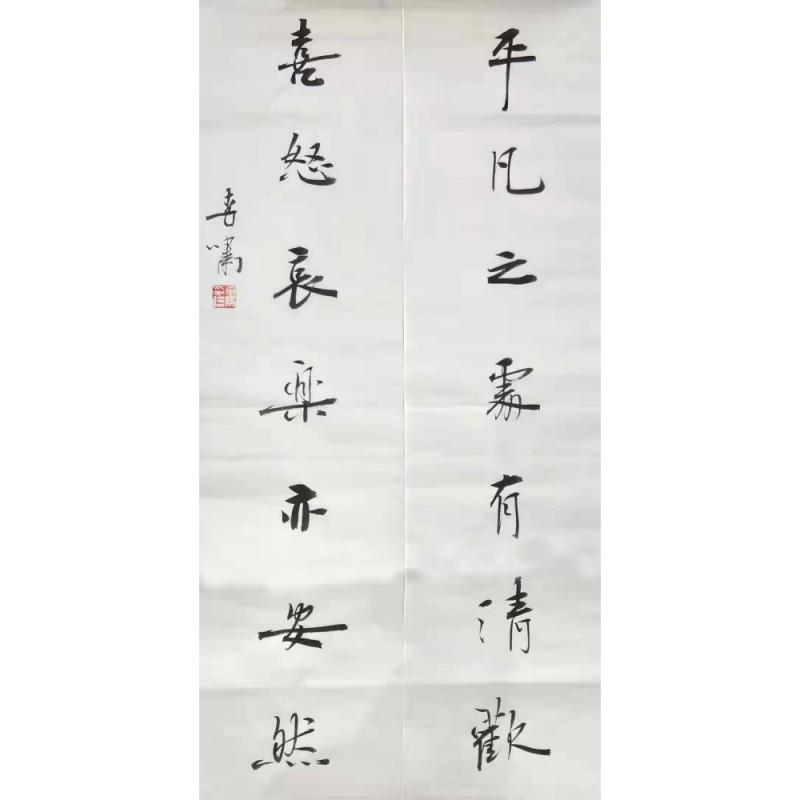 平凡之處有清歡
喜怒哀樂亦安然
春嘯